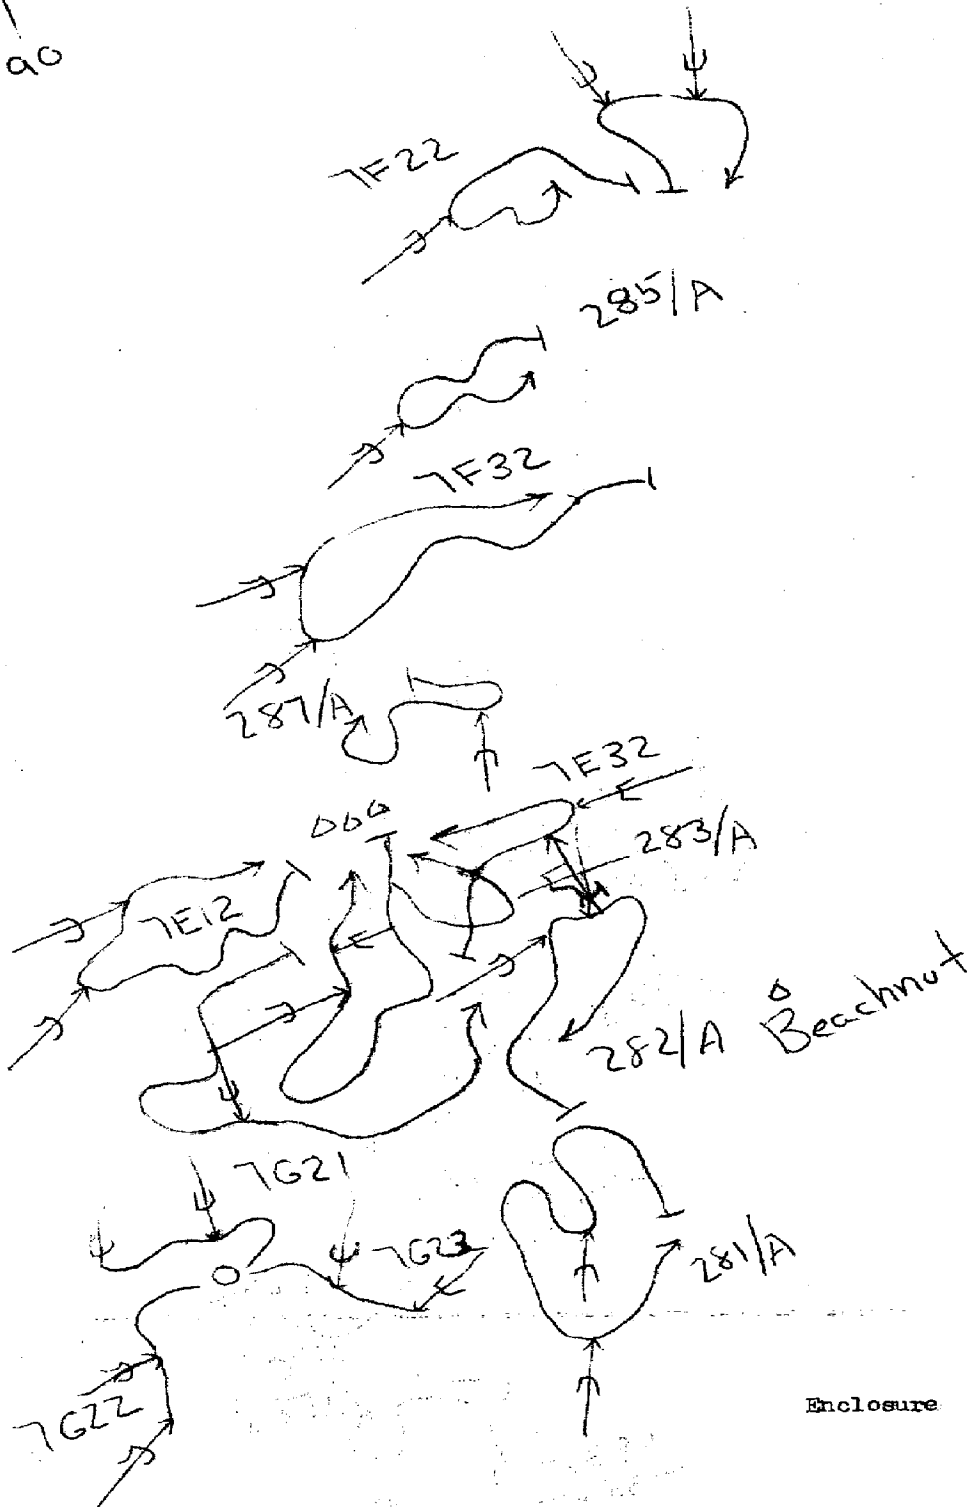 90
7F22
285/A
7F32
287/A
7E32
283/A
7E12
282/A
Beachnut
7G21
7G23
281/A
7G22
Enclosure